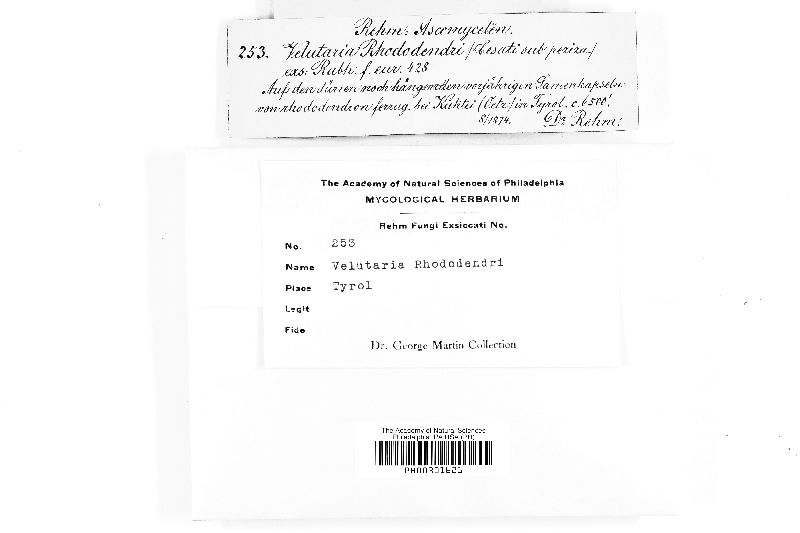 Rehm: Ascomyceten.
253. Velutaria Rhododendri (Cesati sub peziza)
exs: Rabh: f. eur. 428
Auf den dürren noch hängenden vorjährigen Samenkapseln
von rhododendron ferrug. bei Kühtei (Oetz) in Tyrol. c. 6500'.
8/1874. Dr Rehm:
The Academy of Natural Sciences of Philadelphia
MYCOLOGICAL HERBARIUM
Rehm Fungi Exsiccati No.
No. 253
Name Velutaria Rhododendri
Place Tyrol
Legit
Fide
Dr. George Martin Collection
The Academy of Natural Sciences